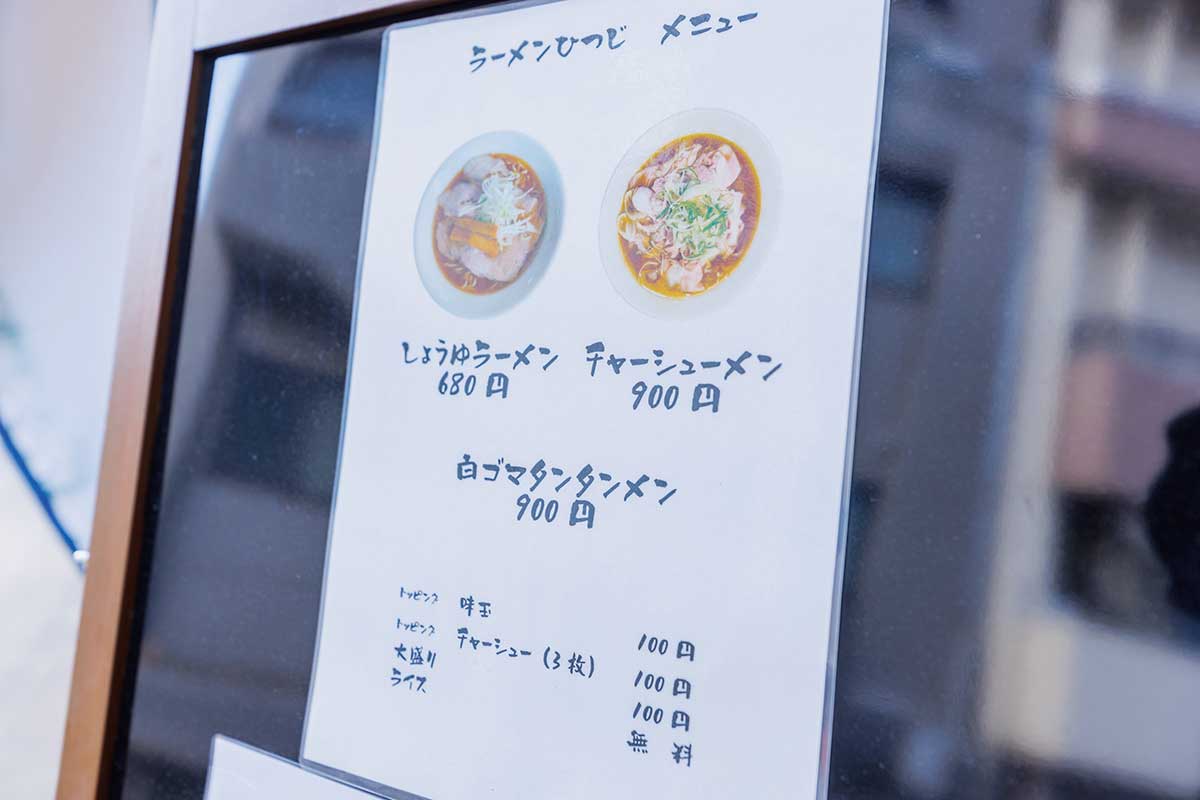 ラーメンひつじ メニュー
しょうゆラーメン
680円
チャーシューメン
900円
白ゴマタンタンメン
900円
トッピング 味玉 100円
トッピング チャーシュー(3枚) 100円
大盛り 100円
ライス 無料